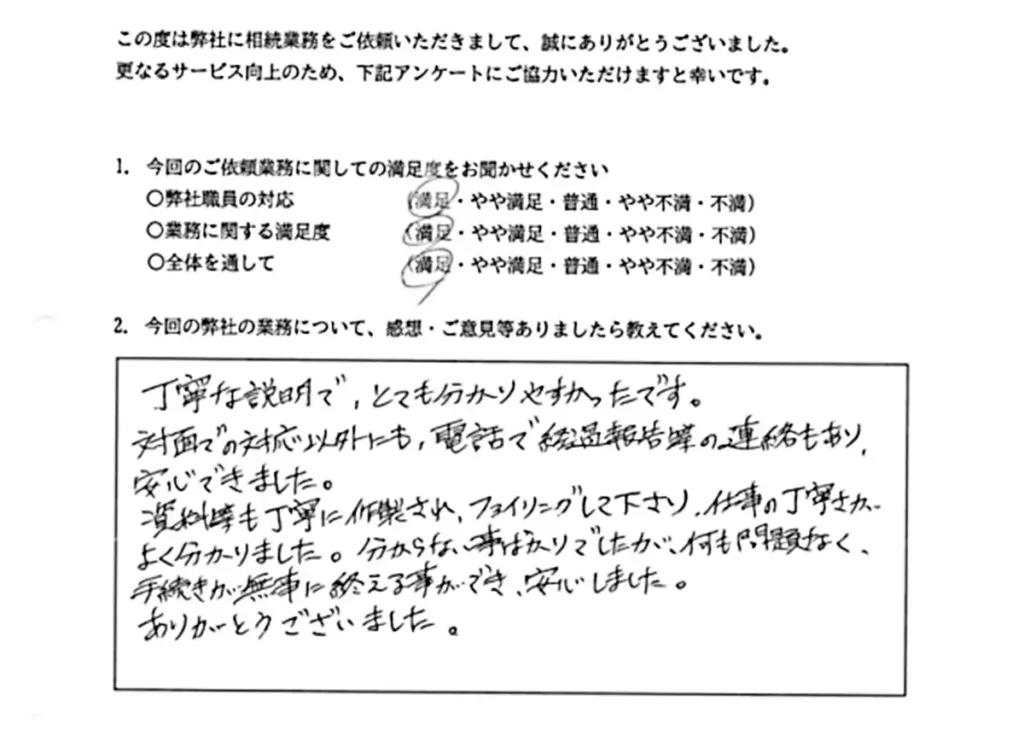 この度は弊社に相続業務をご依頼いただきまして、誠にありがとうございました。
更なるサービス向上のため、下記アンケートにご協力いただけますと幸いです。
1. 今回のご依頼業務に関しての満足度をお聞かせください
○弊社職員の対応 (満足・やや満足・普通・やや不満・不満)
○業務に関する満足度 (満足・やや満足・普通・やや不満・不満)
○全体を通して (満足・やや満足・普通・やや不満・不満)
2. 今回の弊社の業務について、感想・ご意見等ありましたら教えてください。
丁寧な説明で、とても分かりやすかったです。
対面での対応以外にも、電話で経過報告等の連絡もあり、
安心できました。
資料等も丁寧に作製され、ファイリングして下さり、仕事の丁寧さが
よく分かりました。分からない事ばかりでしたが、何も問題なく、
手続きが無事に終える事ができ、安心しました。
ありがとうございました。